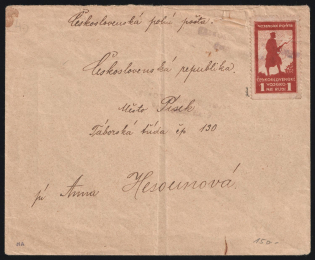 Československá polní pošta.
Československá republika.
Město Písek
Táborská třída čp 190
pí Anna Hesounová.
ČESKOSLOVENSKÉ
VOJSKO
NA RUSI
1 1
150.-